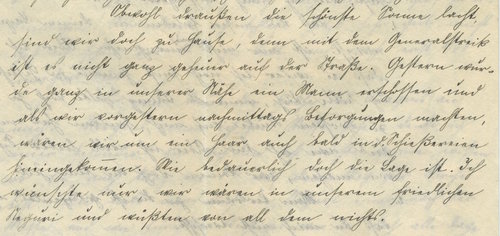 Obwohl draußen die schönste Sonne lacht,
sind wir doch zu Hause, denn mit dem Generalstreik
ist es nicht ganz geheuer auf der Straße. Gestern wur-
de ganz in unserer Nähe ein Mann erschossen und
als wir vorgestern nachmittags Besorgungen machten,
wären wir um ein Haar auch bald in d. Schießereien
hineingekommen. Wie bedauerlich doch die Lage ist. Ich
wünschte nur, wir wären in unserem friedlichen
Neguri und wüßten von all dem nichts.